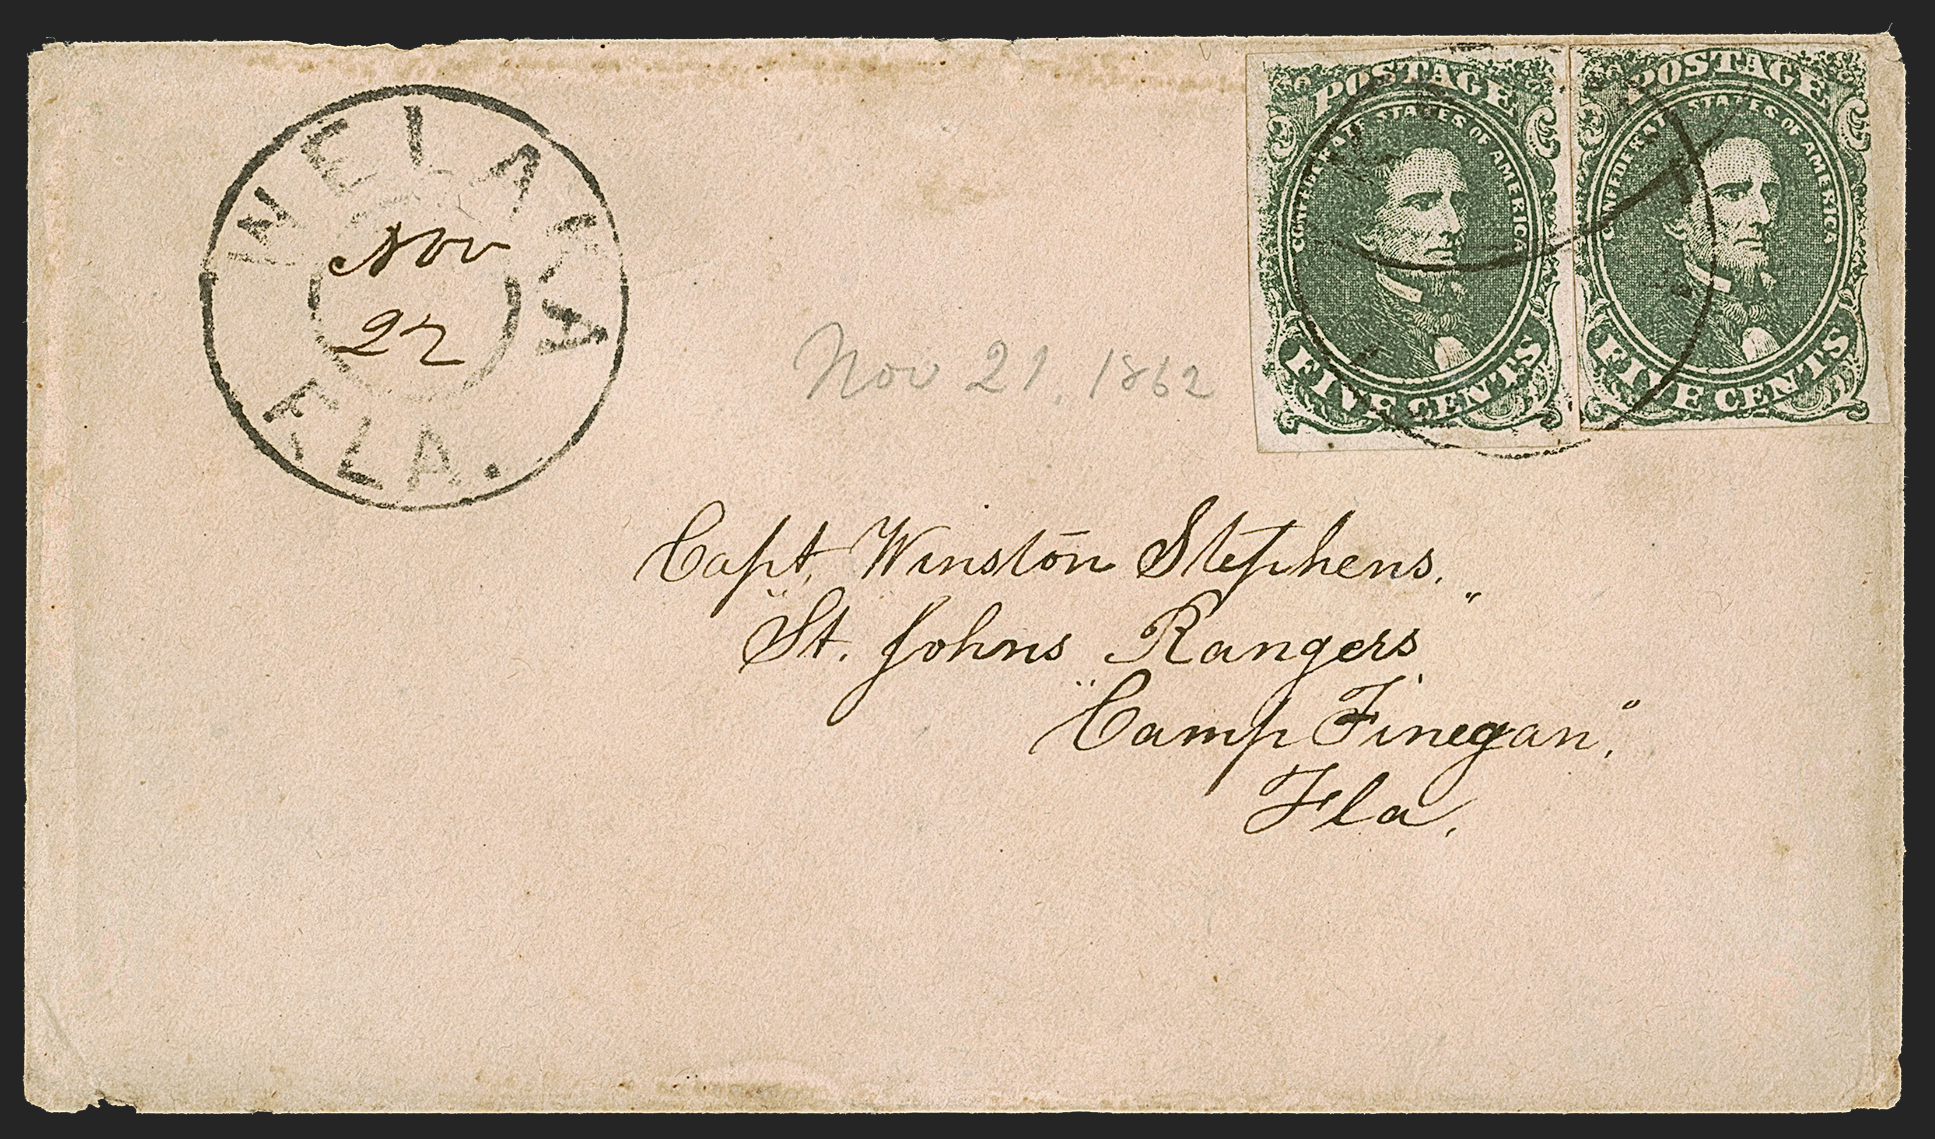 WELAKA
Nov
22
FLA.
POSTAGE
CONFEDERATE STATES OF AMERICA
FIVE CENTS
POSTAGE
CONFEDERATE STATES OF AMERICA
FIVE CENTS
Nov 21, 1862
Capt. Winston Stephens.
"St. Johns Rangers"
"Camp Finegan",
Fla.